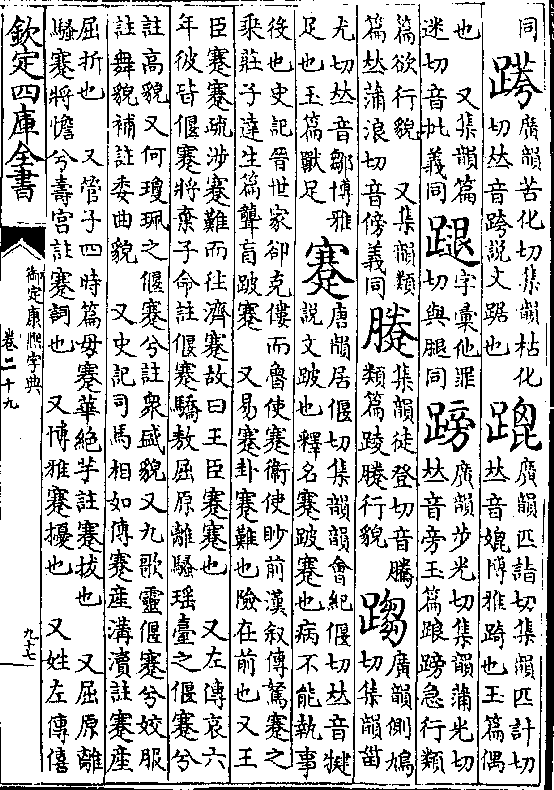 同 䠸 廣韻苦化切集韻枯化切𠀤音跨說文踞也 廣韻匹詣切集韻匹計切𠀤音媲博雅踦也玉篇偶
也 又集韻篇迷切音㧗義同 字彙他罪切與腿同 廣韻步光切集韻蒲光切𠀤音旁玉篇踉䠙急行類
篇欲行貌 又集韻類篇𠀤蒲浪切音傍義同 集韻徒登切音騰類篇踜䠮行貌 䠓 廣韻側鳩切集韻甾
尤切𠀤音鄒博雅足也玉篇獸足 蹇 唐韻居偃切集韻韻會紀偃切𠀤音犍說文跛也釋名蹇跛蹇也病不能執事
後也史記晉世家卻克僂而魯使蹇衞使眇前漢叙傳駑蹇之乘莊子達生篇聾盲跛蹇 又易蹇卦蹇難也險在前也又王
臣蹇蹇疏涉蹇難而往濟蹇故曰王臣蹇蹇也 又左傳哀六年彼皆偃蹇將棄子命註偃蹇驕敖屈原離騷瑶臺之偃蹇兮
註高貌又何瓊珮之偃蹇兮註衆盛貌又九歌靈偃蹇兮姣服註舞貌補註委曲貌 又史記司馬相如傳蹇產溝瀆註蹇產
屈折也 又管子四時篇毋蹇華絕芋註蹇拔也 又屈原離騷蹇將憺兮壽宮註蹇詞也 又博雅蹇擾也 又姓左傳僖
欽定四庫全書
御定康熙字典
卷二十九
九十七